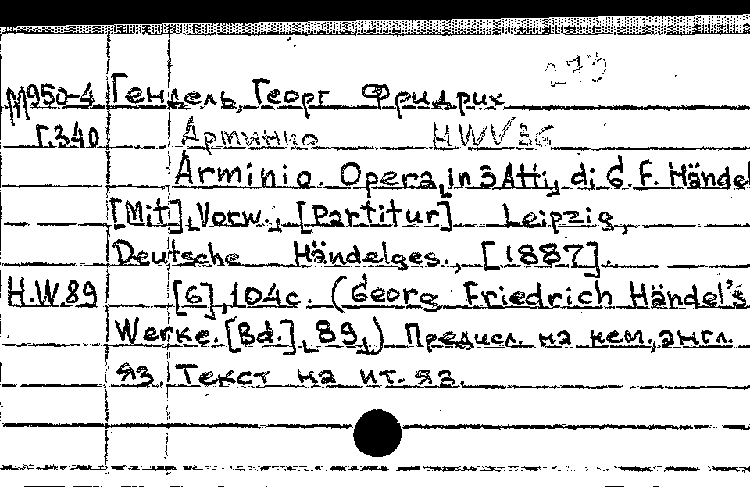 273
М950-4 Гендель, Георг Фридрих
Г.340 Арминио HWV 36
Arminio. Opera in 3 Atti, di G. F. Händel
[Mit] Vorw., [Partitur] Leipzig,
Deutsche Händelges., [1887].
H.W.89 [6], 104 с. (Georg Friedrich Händel's
Werke. [Bd.] 89.) Предисл. на нем., англ.
яз. Текст на ит. яз.